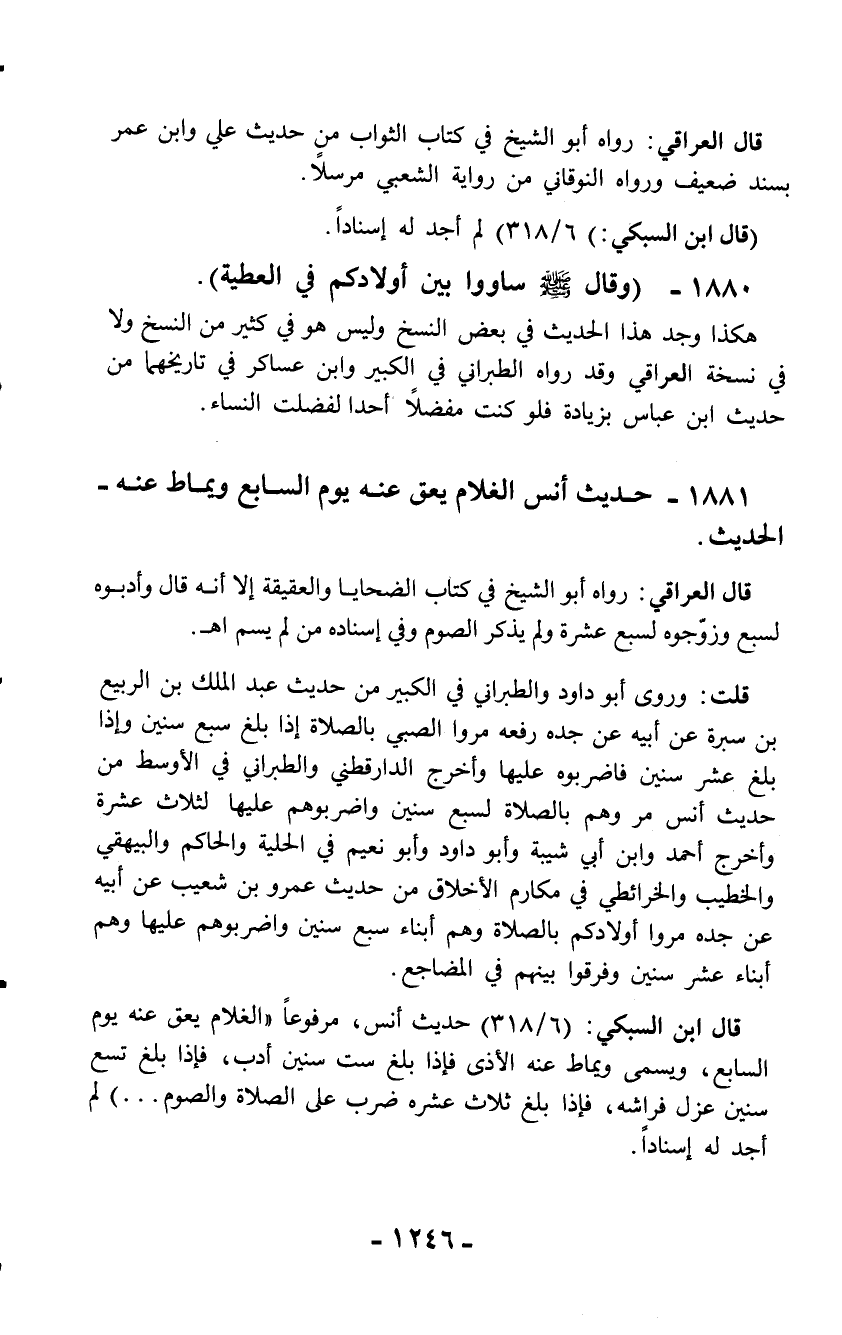 قال العراقي: رواه أبو الشيخ في كتاب الثواب من حديث علي وابن عمر
بسند ضعيف ورواه النوقاني من رواية الشعبي مرسلاً.
(قال ابن السبكي:) ٣١٨/٦) لم أجد له إسناداً.
١٨٨٠ - (وقال ﷺ ساووا بين أولادكم في العطية).
هكذا وجد هذا الحديث في بعض النسخ وليس هو في كثير من النسخ ولا
في نسخة العراقي وقد رواه الطبراني في الكبير وابن عساكر في تاريخهما من
حديث ابن عباس بزيادة فلو كنت مفضلاً أحدا لفضلت النساء.
١٨٨١ - حديث أنس الغلام يعق عنه يوم السابع ويماط عنه -
الحديث.
قال العراقي: رواه أبو الشيخ في كتاب الضحايا والعقيقة إلا أنه قال وأدبوه
لسبع وزوّجوه لسبع عشرة ولم يذكر الصوم وفي إسناده من لم يسم اهـ.
قلت: وروى أبو داود والطبراني في الكبير من حديث عبد الملك بن الربيع
بن سبرة عن أبيه عن جده رفعه مروا الصبي بالصلاة إذا بلغ سبع سنين وإذا
بلغ عشر سنين فاضربوه عليها وأخرج الدارقطني والطبراني في الأوسط من
حديث أنس مر وهم بالصلاة لسبع سنين واضربوهم عليها لثلاث عشرة
وأخرج أحمد وابن أبي شيبة وأبو داود وأبو نعيم في الحلية والحاكم والبيهقي
والخطيب والخرائطي في مكارم الأخلاق من حديث عمرو بن شعيب عن أبيه
عن جده مروا أولادكم بالصلاة وهم أبناء سبع سنين واضربوهم عليها وهم
أبناء عشر سنين وفرقوا بينهم في المضاجع.
قال ابن السبكي: (٣١٨/٦) حديث أنس، مرفوعاً «الغلام يعق عنه يوم
السابع، ويسمى ويماط عنه الأذى فإذا بلغ ست سنين أدب، فإذا بلغ تسع
سنين عزل فراشه، فإذا بلغ ثلاث عشره ضرب على الصلاة والصوم...) لم
أجد له إسناداً.
- ١٢٤٦ -